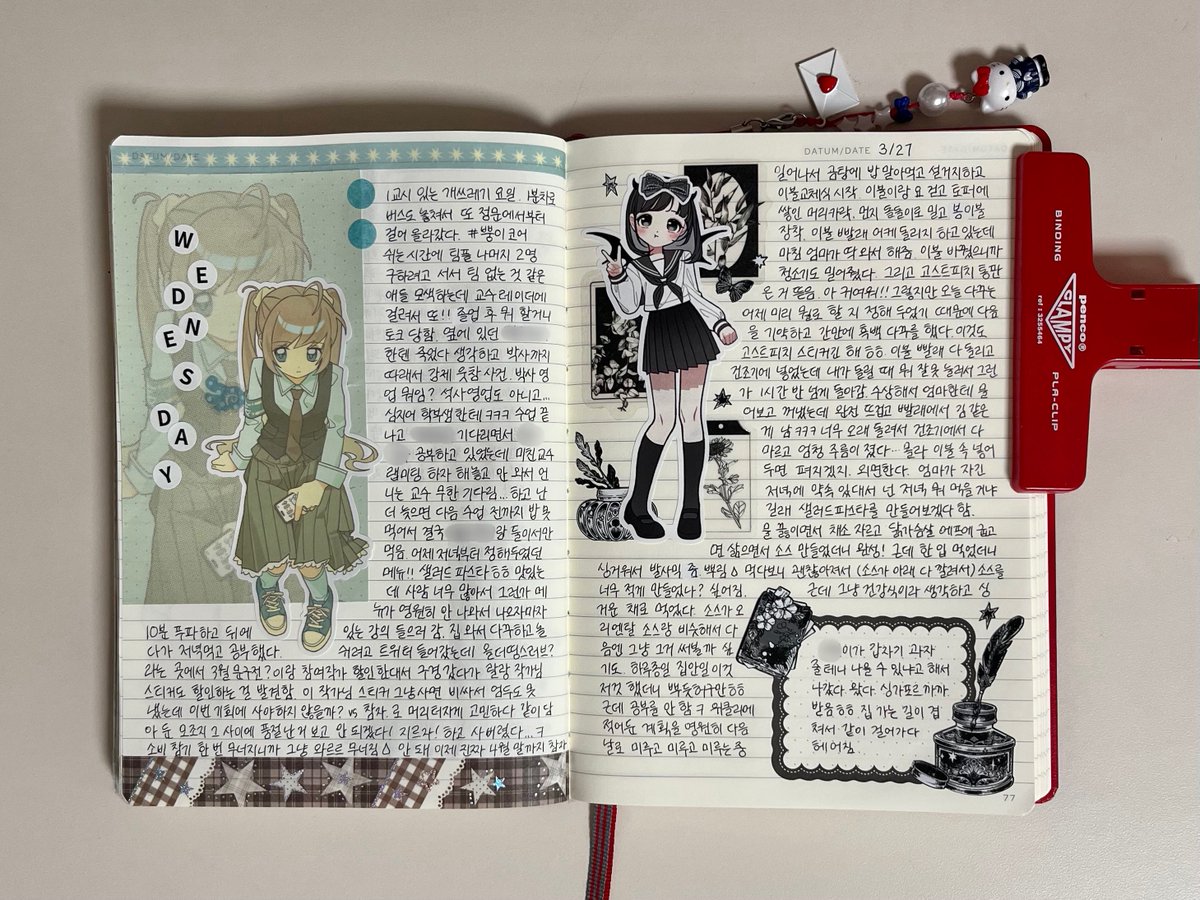 DATUM/DATE
WEDENSDAY
1교시 있는 개쓰레기 요일. 1분차로
버스도 놓쳐서 또 정문에서부터
걸어 올라갔다. #뿡이코어
쉬는시간에 팀플 나머지 2명
구하려고 서서 팀 없는 것 같은
애들 모색하는데 교수 레이더에
걸려서 또!! 졸업 후 뭐 할거니
토크 당함. 옆에 있던
한텐 물었다 생각하고 박사까지
따래서 강제 웃참 사건. 박사 영
업 뭐임? 석사영업도 아니고...
심지어 학부생한테 ㅋㅋㅋ 수업 끝
나고 기다리면서
공부하고 있었는데 미친교수
랩미팅 하자 해놓고 안 와서 언
니는 교수 무한 기다림... 하고 난
더 늦으면 다음 수업 전까지 밥 못
먹어서 결국 랑 둘이서만
먹음. 어제 저녁부터 정해두었던
메뉴!! 샐러드 파스타ㅎㅎ 맛있는
데 사람 너무 많아서 그런가 메
뉴가 영원히 안 나와서 나오자마자
10분 푸파하고 뒤에 있는 강의 들으러 감. 집 와서 다꾸하고 놀
다가 저녁먹고 공부했다. 쉬려고 트위터 들어갔는데 올데띵스러브?
라는 곳에서 3월 문구전?이랑 참여작가 할인한대서 구경 갔다가 랄랑 작가님
스티커도 할인하는 걸 발견함. 이 작가님 스티커 그냥 사면 비싸서 엄두도 못
냈는데 이번 기회에 사야하지 않을까? vs 참자. 로 머리터지게 고민하다 같이 담
아 둔 모조지 그 사이에 품절난거 보고 안 되겠다! 지르자! 하고 사버렸다...ㅋ
소비 참기 한 번 무너지니까 그냥 와르르 무너짐 안 돼 이제 진짜 4월 말까지 참자
DATUM/DATE 3/27
일어나서 곰탕에 밥 말아먹고 설거지하고
이불교체식 시작. 이불이랑 요 걷고 토퍼에
쌓인 머리카락, 먼지 돌돌이로 밀고 봄이불
장착. 이불 빨래 어케 돌리지 하고 있는데
마침 엄마가 딱 와서 해줌. 이불 바꿨으니까
청소기도 밀어줬다. 그리고 고스트피치 통판
온 거 뜯음. 아 귀여워!! 그렇지만 오늘 다꾸는
어제 미리 뭘로 할 지 정해 두었기 때문에 다음
을 기약하고 간만에 흑백 다꾸를 했다. 이것도
고스트피치 스티커긴 해ㅎㅎ 이불 빨래 다 돌리고
건조기에 넣었는데 내가 돌릴 때 뭐 잘못 눌러서 그런
가 1시간 반 넘게 돌아감. 수상해서 엄마한테 물
어보고 꺼냈는데 완전 뜨겁고 빨래에서 김 같은
게 남 ㅋㅋㅋ 너무 오래 돌려서 건조기에서 다
마르고 엄청 주름이 졌다... 몰라 이불 속 넣어
두면 펴지겠지. 외면한다. 엄마가 자긴
저녁에 약속 있대서 넌 저녁 뭐 먹을거냐
길래 샐러드파스타를 만들어보겠다 함.
물 끓이면서 채소 자르고 닭가슴살 에프에 굽고
면 삶으면서 소스 만들었더니 완성! 근데 한 입 먹었더니
싱거워서 발사믹 좀 뿌림 먹다보니 괜찮아져서 (소스가 아래 다 깔려서) 소스를
너무 적게 만들었나? 싶어짐. 근데 그냥 건강식이라 생각하고 싱
거운 채로 먹었다. 소스가 오
리엔탈 소스랑 비슷해서 다
음엔 그냥 그거 써볼까 싶
기도. 하루종일 집안일 이것
저것 했더니 뿌듯하구만ㅎㅎ
근데 공부를 안 함ㅋ 위클리에
적어둔 계획을 영원히 다음
날로 미루고 미루고 미루는 중
이가 갑자기 과자
줄테니 나올 수 있냐고 해서
나갔다 왔다. 싱가포르까까
반응ㅎㅎ 집 가는 길이 겹
쳐서 같이 걸어가다
헤어짐.
77
BINDING
penco®
CLAMPY
ref : 3255464
PLA-CLIP